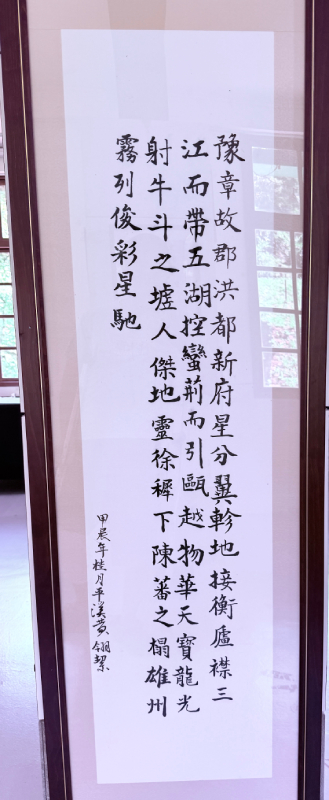 豫章故郡洪都新府星分翼軫地接衡廬襟三
江而帶五湖控蠻荊而引甌越物華天寶龍光
射牛斗之墟人傑地靈徐穉下陳蕃之榻雄州
霧列俊彩星馳
甲辰年桂月平溪黃翎絜